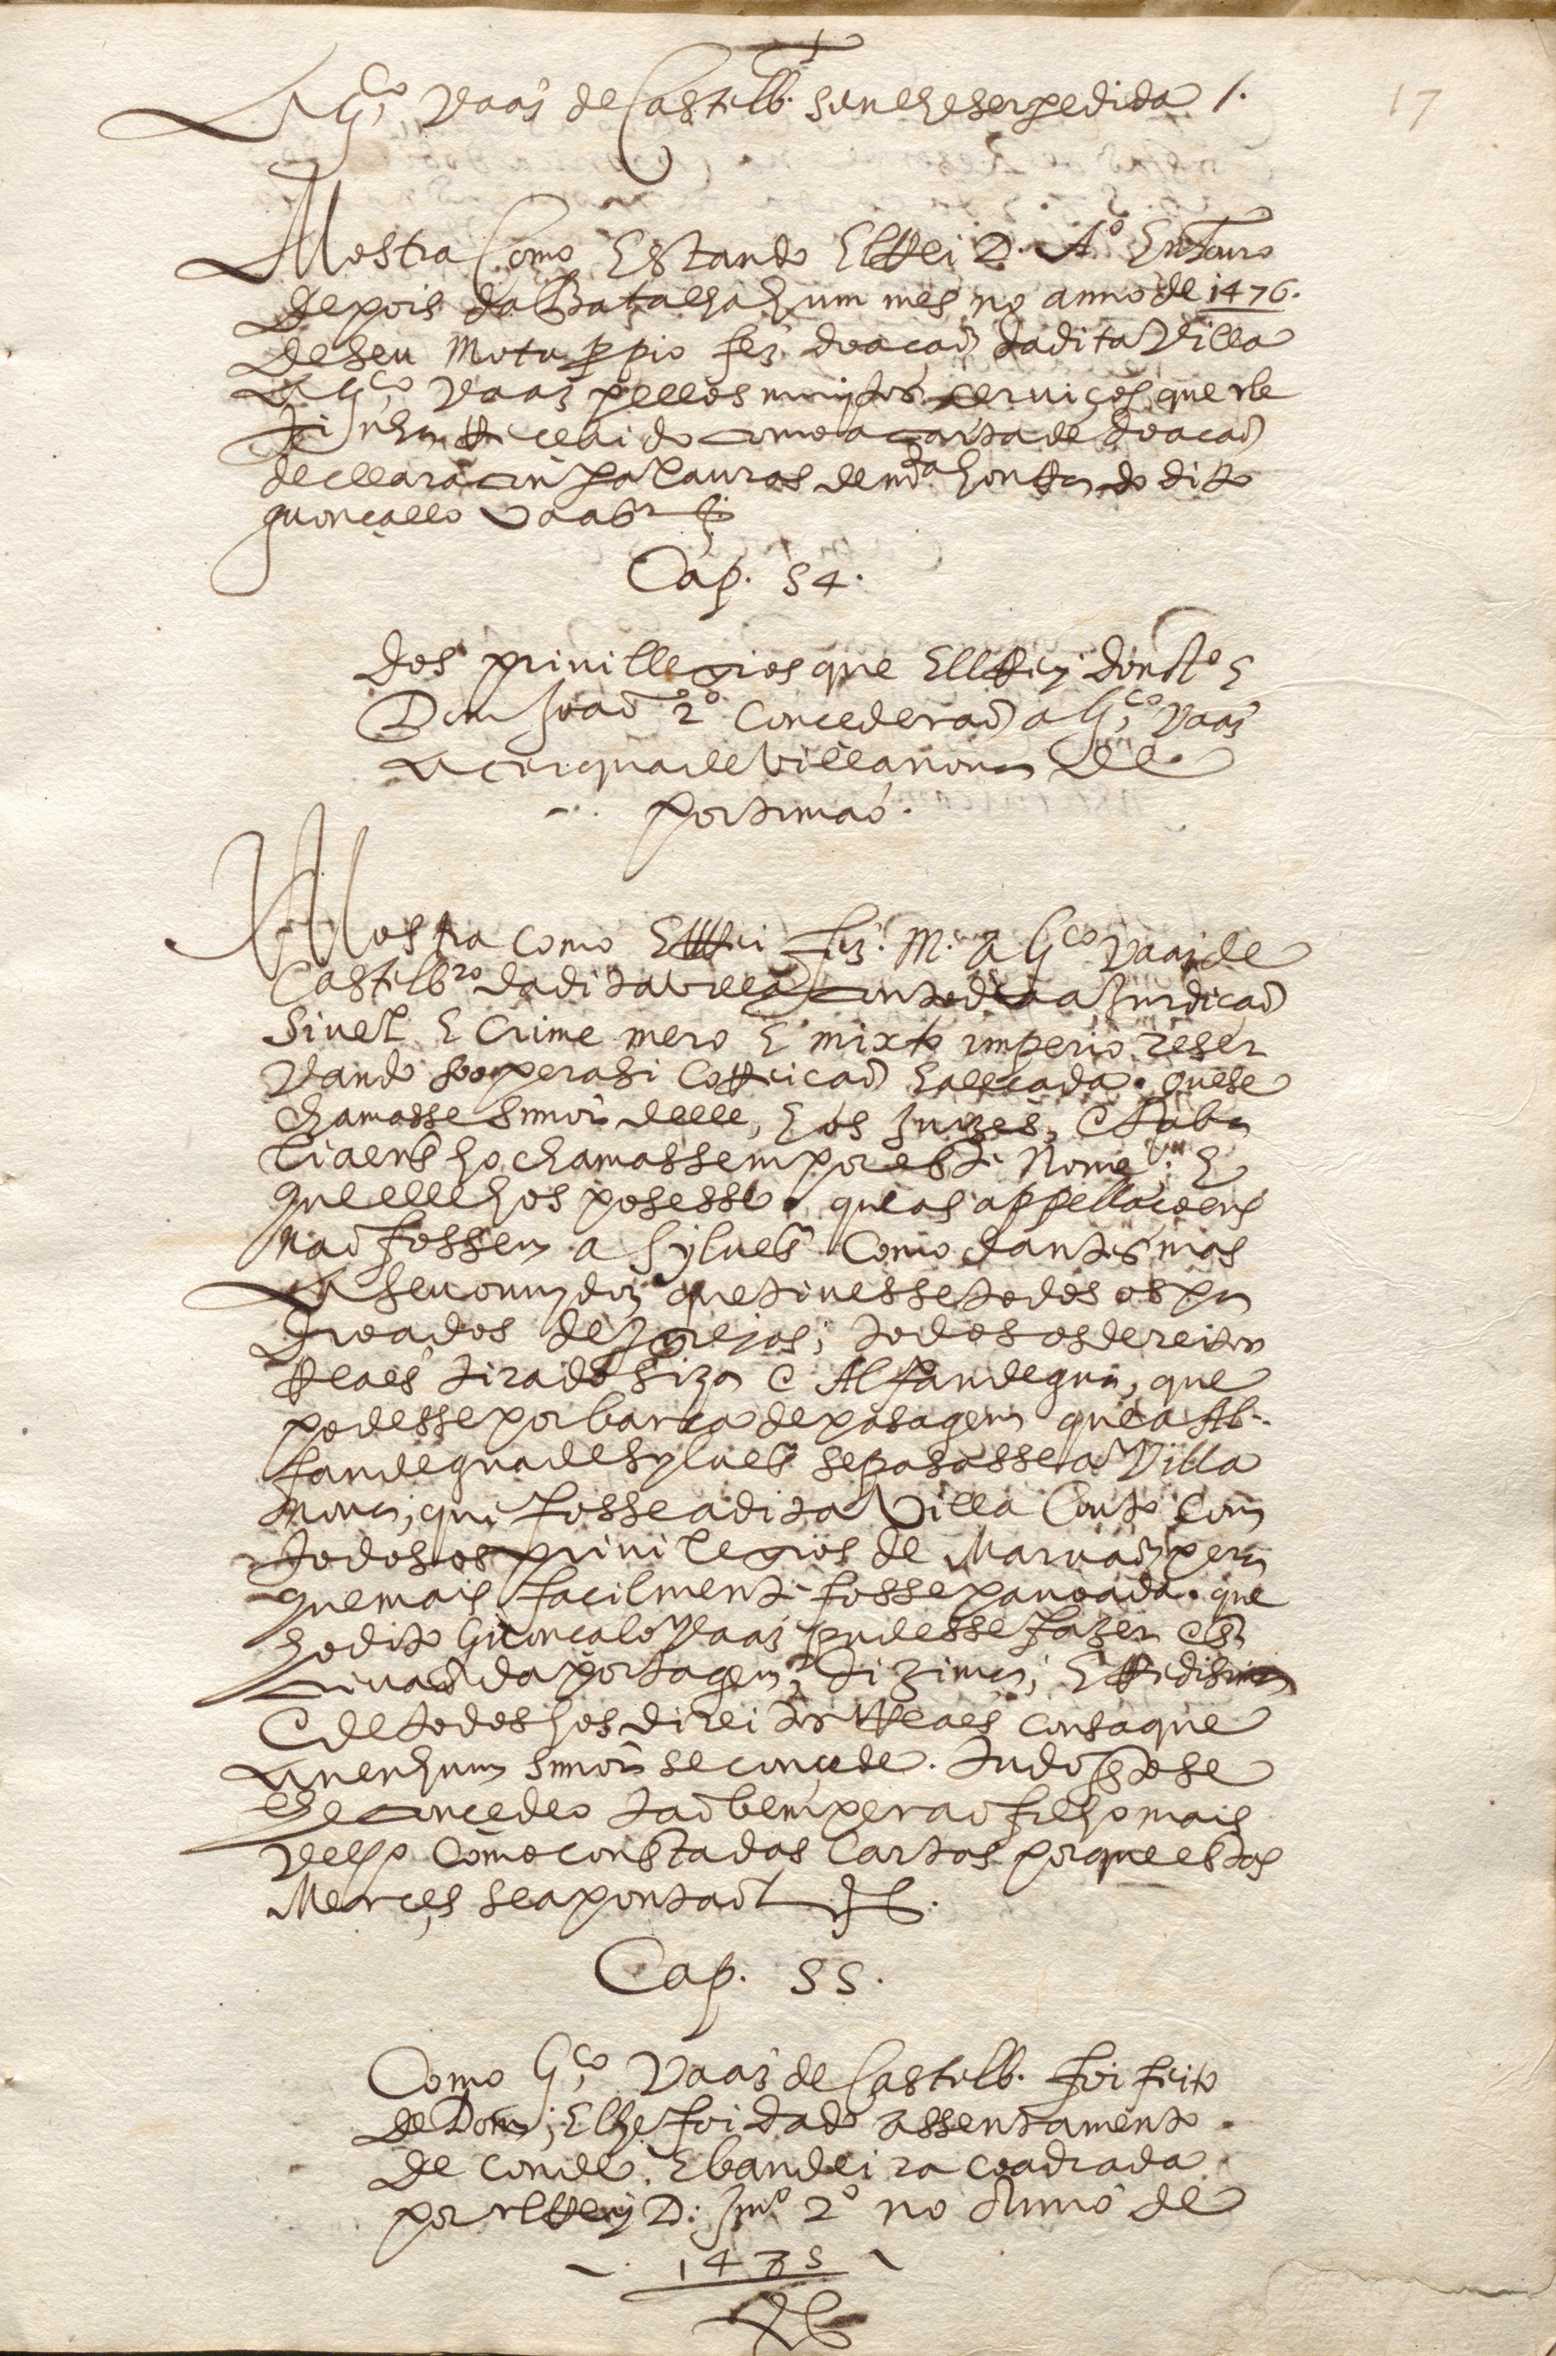 A G.co Vaaz de Castelb. sem lhe ser pedida /.
17
Mostra Como Estando ElRei D. A.o En Touro
depois da Batalha hum mes no anno de 1476.
de seu motu ppio fez doaçaõ da dita Villa
a G.co Vaaz pellos muytos serviços que delle
tinha Recebido como a carta de doacaõ
declara con palauras de mta honrra do dito
guoncallo Vaaz
Cap. 54.
dos priuillegios que ElRey dom A.o E
Dom Joaõ 2.o Concederaõ a G.co Vaaz
a cerqua de Villanoua de
portimaõ.
Mostra como ElRei fez M. a G.co Vaaz de
Castelb.co da dita villa con toda a Jurdicaõ
Siuel E Crime mero E mixto imperio reser
vando soo pera si Correicaõ E allcada. que se
chamasse Senor delle, E os Juizes, E taba
liaens ho chamassem por este Nome. E
que elle hos posesse. que as appellacoens
naõ fossem a Sylues Como dantes mas
a seu ouuydor que tiuesse todos os pa
droados de Igrejas, todos os dereitos
Reaes tirado siza E Alfandegua, que
podesse por barca de pasagem que a Al-
fandegua de Sylues se pasasse a Villa
noua, que fosse a dita Villa Couto Com
todos os priuilegios de Maruaõ pera
que mais facilmente fosse pauoada. que
ho dito Guoncalo Vaaz pudesse fazer es
criuaõ da portagem, dizima, E Redizima
E de todos hos direitos Reaes cousa que
a nenhum senor se concede. tudo isto se
lhe concedeo taõbem pera o filho mais
velho Como consta das Cartas porque estas
Merces se apontaõ
Cap. 55.
Como G.co Vaaz de Castelb. foi feito
de Dom, E lhe foi dado assentamento
de conde. E bandeira coadrada
por elRey D. Joaõ 2.o no Anno de
1485